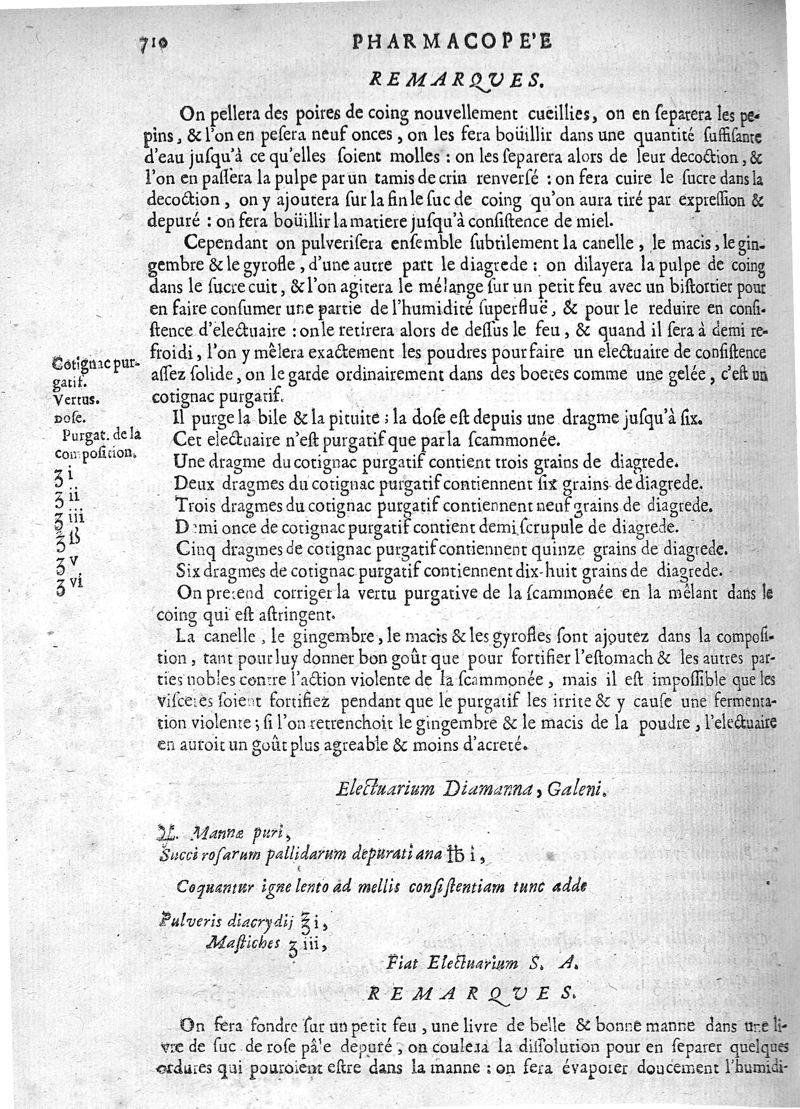 710 PHARMACOPE'E
REMARQVES.
On pellera des poires de coing nouvellement cueillies, on en separera les pe-
pins, & l'on en peſera neuf onces, on les fera boüillir dans une quantité ſuffiſante
d'eau juſqu'à ce qu'elles ſoient molles : on les ſeparera alors de leur decoction, &
l'on en paſſera la pulpe par un tamis de crin renverſé : on fera cuire le ſucre dans la
decoction, on y ajoutera ſur la fin le ſuc de coing qu'on aura tiré par expreſſion &
depuré : on fera boüillir la matiere juſqu'à conſiſtence de miel.
Cependant on pulveriſera enſemble ſubtilement la canelle, le macis, le gin-
gembre & le gyrofle, d'une autre part le diagrede : on dilayera la pulpe de coing
dans le ſucre cuit, & l'on agitera le mélange ſur un petit feu avec un biſtortier pour
en faire conſumer une partie de l'humidité ſuperfluë, & pour le reduire en conſi-
ſtence d'electuaire : on le retirera alors de deſſus le feu, & quand il ſera à demi re-
froidi, l'on y mêlera exactement les poudres pour faire un electuaire de conſiſtence
aſſez ſolide, on le garde ordinairement dans des boetes comme une gelée, c'eſt un
cotignac purgatif.
Cotignac pur-
gatif.
Vertus.
Doſe.
Purgat. de la
compoſition.
Il purge la bile & la pituite ; la doſe eſt depuis une dragme juſqu'à ſix.
Cet electuaire n'eſt purgatif que par la ſcammonée.
ʒ i
Une dragme du cotignac purgatif contient trois grains de diagrede.
ʒ ii
Deux dragmes du cotignac purgatif contiennent ſix grains de diagrede.
ʒ iii
Trois dragmes du cotignac purgatif contiennent neuf grains de diagrede.
℥ ß
Demi once de cotignac purgatif contient demi ſcrupule de diagrede.
ʒ v
Cinq dragmes de cotignac purgatif contiennent quinze grains de diagrede.
ʒ vi
Six dragmes de cotignac purgatif contiennent dix-huit grains de diagrede.
On pretend corriger la vertu purgative de la ſcammonée en la mêlant dans le
coing qui eſt aſtringent.
La canelle, le gingembre, le macis & les gyrofles ſont ajoutez dans la compoſi-
tion, tant pour luy donner bon goût que pour fortifier l'eſtomach & les autres par-
ties nobles contre l'action violente de la ſcammonée, mais il eſt impoſſible que les
viſceres ſoient fortifiez pendant que le purgatif les irrite & y cauſe une fermenta-
tion violente ; ſi l'on retrenchoit le gingembre & le macis de la poudre, l'electuaire
en auroit un goût plus agreable & moins d'acreté.
Electuarium Diamanna, Galeni.
℞. Mannæ puri,
Succi roſarum pallidarum depurati ana ℔ i,
Coquantur igne lento ad mellis conſiſtentiam tunc adde
Pulveris diacrydij ℥ i,
Maſtiches ʒ iii,
Fiat Electuarium S. A.
REMARQVES.
On fera fondre ſur un petit feu, une livre de belle & bonne manne dans une li-
vre de ſuc de roſe pâle depuré, on coulera la diſſolution pour en ſeparer quelques
ordures qui pouroient eſtre dans la manne : on fera évaporer doucement l'humidi-